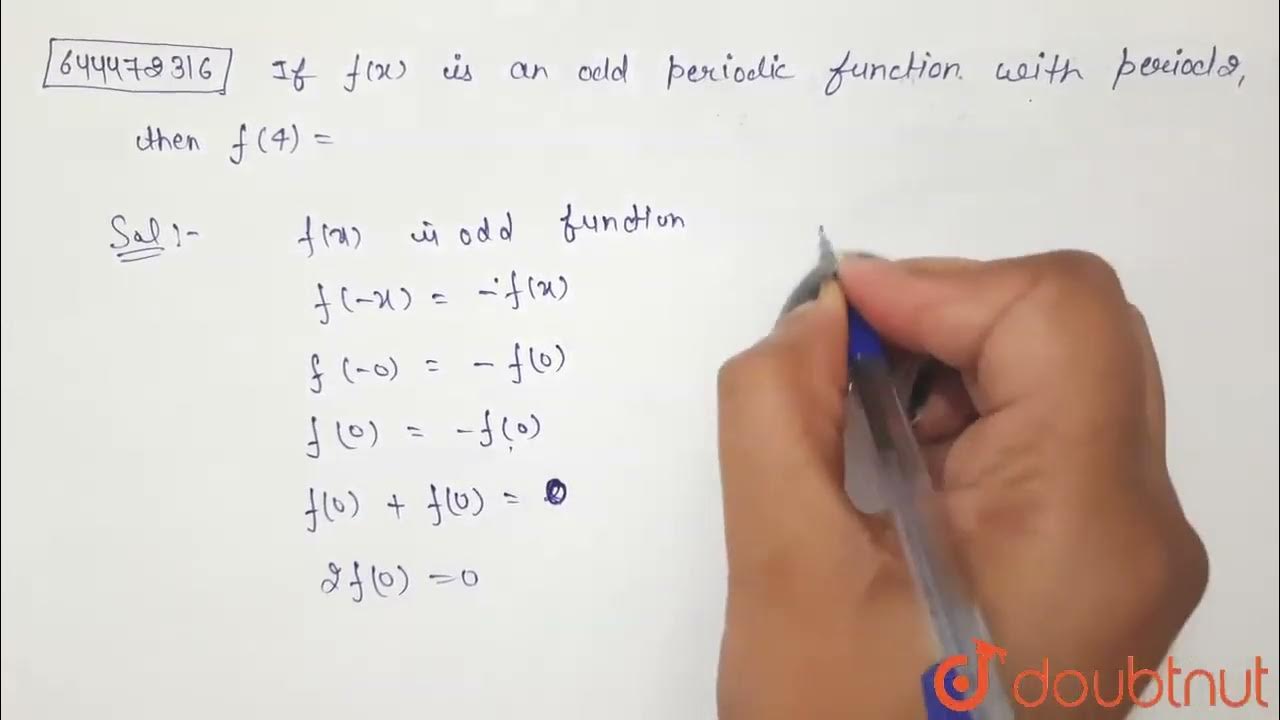 6444792316 If f(x) is an odd periodic function with period 2,
then f(4) =
Sol :- f(x) is odd function
f(-x) = -f(x)
f(-0) = - f(0)
f(0) = -f(0)
f(0) + f(0) = 0
2f(0) = 0
doubtnut